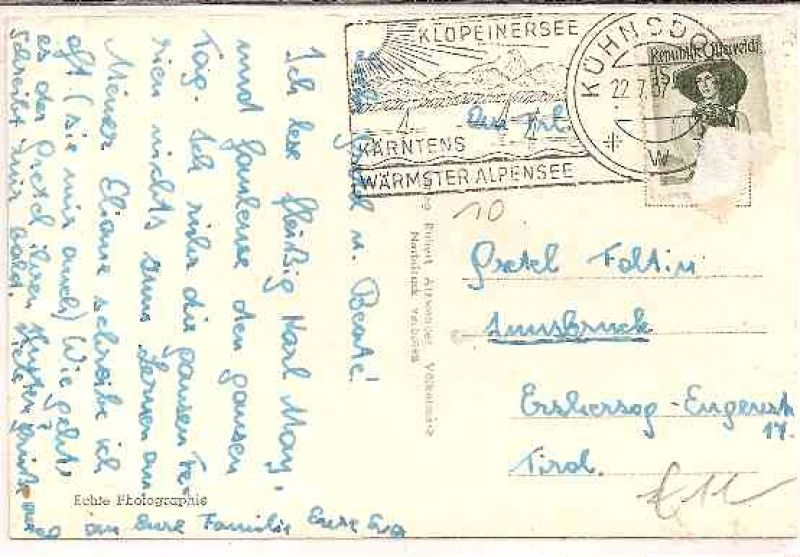 KLOPEINERSEE
KÄRNTENS
WÄRMSTER ALPENSEE
KÜHNSDO
22.7.57
W
Republik Österreich
u. Beate!
Ich lese fleißig Karl May,
und faulenze den ganzen
Tag. Ich rühr die ganzen Fe-
rien nichts zum Lernen an
Meiner Eliane schreibe ich
oft (sie mir auch) Wie geht
es der Gretel ihren Husten?
Schreibt mir
an Eure Familie Eure Eva
Echte Photographie
Alexander
Nachdruck verboten
An Frl.
10
Gretel Foltin
Innsbruck
Erzherzog-Eugenstr
17.
Tirol.